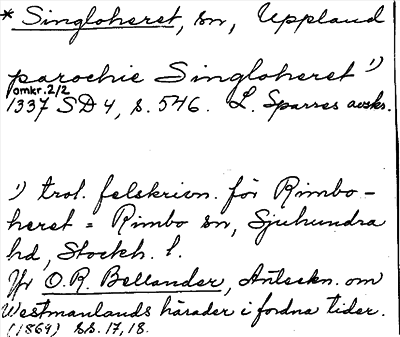 * Singloheret, sn, Uppland
parochie Singloheret 1)
omkr. 2/2
1337 SD 4, s. 546. L. Sparres avskr.
1) trol. felskrivn. för Rimbo-
heret = Rimbo sn, Sjuhundra
hd, Stockh. l.
Jfr O.R. Bellander, Anteckn. om
Westmanlands härader i fordna tider.
(1869) ss. 17, 18.